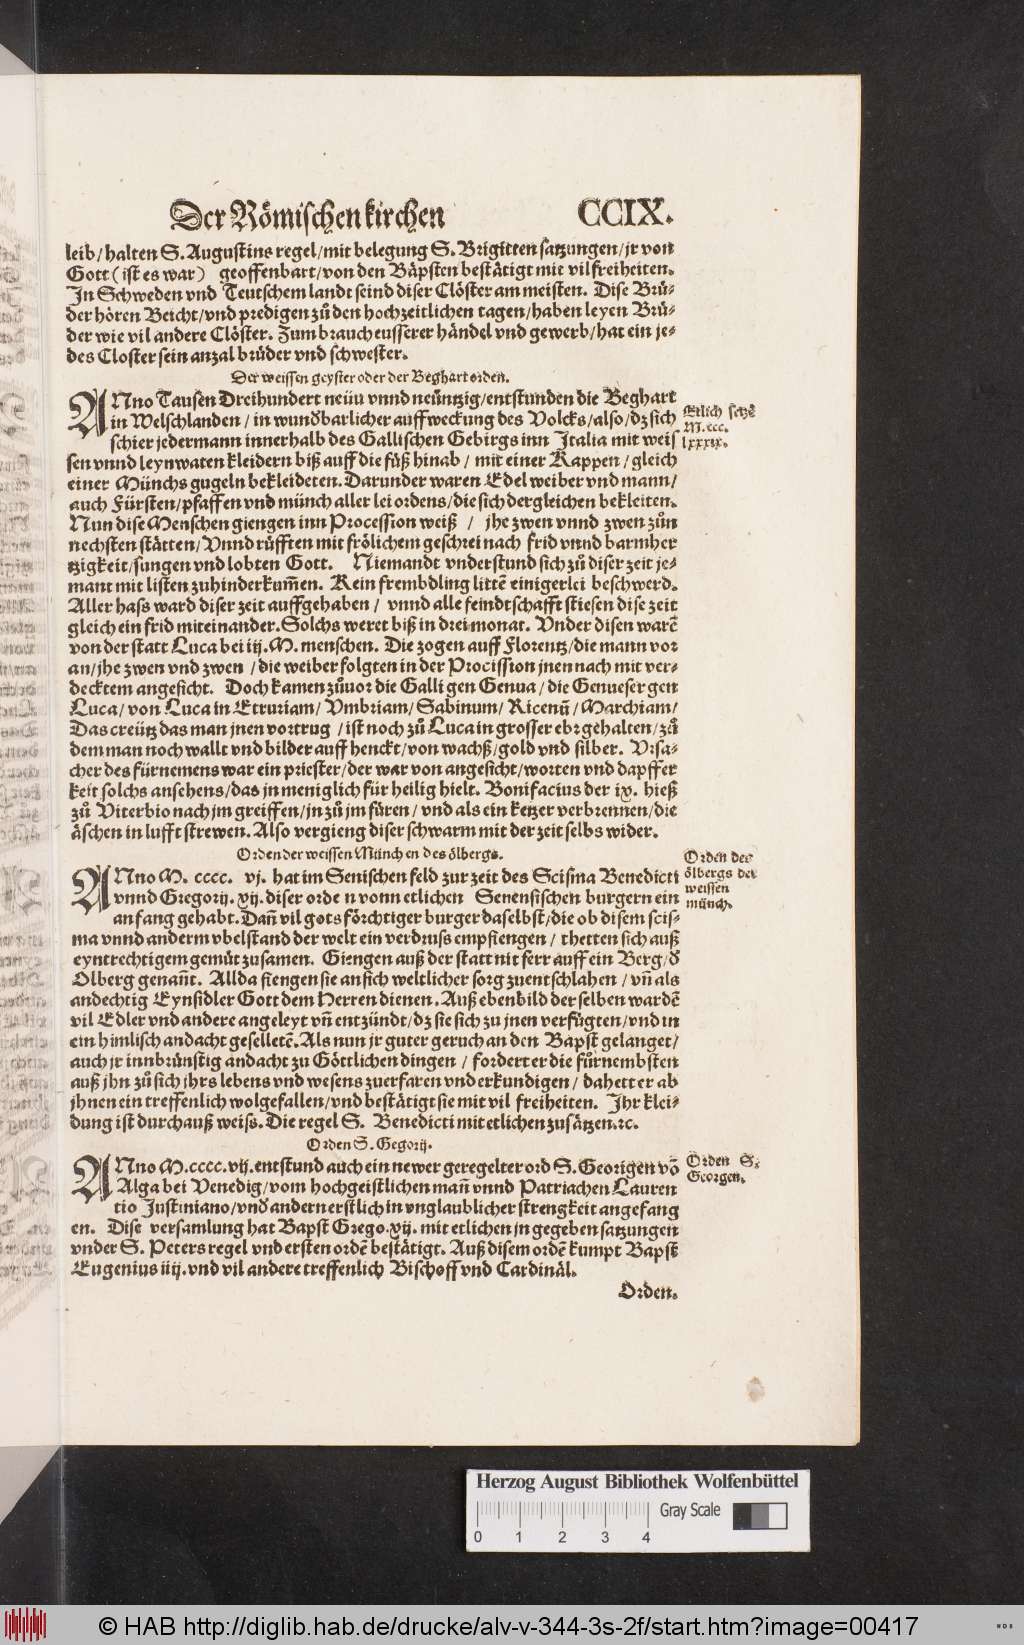 Der Römischen kirchen CCIX.
leib/ halten S. Augustins regel/ mit belegung S. Brigitten satzungen/ jr von
Gott (ist es war) geoffenbart/ von den Bäpsten bestätigt mit vil freiheiten.
In Schweden vnd Teutschem landt seind diser Clöster am meisten. Dise Brü-
der hören Beicht/ vnd predigen zů den hochzeitlichen tagen/ haben leyen Brü-
der wie vil andere Clöster. Zum brauch eusserer händel vnd gewerb/ hat ein je-
des Closter sein anzal brüder vnd schwester.
Der weissen geyster oder der Beghart orden.
ANno Tausen Dreihundert neün vnnd neüntzig/ entstunden die Beghart
in Welschlanden/ in wunđbarlicher auffweckung des Volcks/ also/ dz sich
schier jedermann innerhalb des Gallischen Gebirgs inn Italia mit weis
sen vnnd leynwaten kleidern biß auff die füß hinab/ mit einer Kappen/ gleich
einer Münchs gugeln bekleideten. Darunder waren Edel weiber vnd mann/
auch Fürsten/ pfaffen vnd münch aller lei ordens/ die sich dergleichen bekleiten.
Nun dise Menschen giengen inn Procession weiß / jhe zwen vnnd zwen zůn
nechsten stätten/ Vnnd růfften mit frölichem geschrei nach frid vnnd barmher
tzigkeit/ sungen vnd lobten Gott. Niemandt vnderstund sich zů diser zeit je-
mant mit listen zuhinderkum̃en. Kein frembdling littẽ einigerlei beschwerd.
Aller hass ward diser zeit auffgehaben/ vnnd alle feindtschafft stiesen dise zeit
gleich ein frid miteinander. Solchs weret biß in drei monat. Vnder disen warẽ
von der statt Luca bei iij. M. menschen. Die zogen auff Florentz/ die mann vor
an/ jhe zwen vnd zwen/ die weiber folgten in der Procission jnen nach mit ver-
decktem angesicht. Doch kamen zůuor die Galli gen Genua/ die Genueser gen
Luca/ von Luca in Etruriam/ Vmbriam/ Sabinum/ Ricenū/ Marchiam/
Das creütz das man jnen vortrug / ist noch zů Luca in grosser ehr gehalten/ zů
dem man noch wallt vnd bilder auff henckt/ von wachß/ gold vnd silber. Vrsa-
cher des fürnemens war ein priester/ der war von angesicht/ worten vnd dapffer
keit solchs ansehens/ das jn meniglich für heilig hielt. Bonifacius der ix. hieß
zů Viterbio nach jm greiffen/ jn zů jm füren/ vnd als ein ketzer verbrennen/ die
äschen in lufft strewen. Also vergieng diser schwarm mit der zeit selbs wider.
Etlich setzẽ
M.ccc.
lxxxix.
Orden der weissen München des ölbergs.
ANno M. cccc. vj. hat im Senischen feld zur zeit des Scisma Benedicti
vnnd Gregorij. xij. diser orde n vonn etlichen Senensischen burgern ein
anfang gehabt. Dañ vil gotsförchtiger burger daselbst/ die ob disem scis-
ma vnnd anderm vbelstand der welt ein verdruss empfiengen/ thetten sich auß
eyntrechtigem gemüt zusamen. Giengen auß der statt nit ferr auff ein Berg/ đ
Olberg genañt. Allda fiengen sie an sich weltlicher sorg zuentschlahen / vñ als
andechtig Eynsidler Gott dem Herren dienen. Auß ebenbild der selben wardẽ
vil Edler vnd andere angeleyt vñ entzündt/ dz sie sich zu jnen verfügten/ vnd in
ein himlisch andacht geselletẽ. Als nun jr guter geruch an den Bapst gelanget/
auch jr innbrünstig andacht zu Göttlichen dingen / fordert er die fürnembsten
auß jhn zů sich jhrs lebens vnd wesens zuerfaren vnd erkundigen/ da hett er ab
jhnen ein treffenlich wolgefallen/ vnd bestätigt sie mit vil freiheiten. Ihr klei-
dung ist durchauß weiss. Die regel S. Benedicti mit etlichen zusätzen.ꝛc.
Orden des
ölbergs der
weissen
münch.
Orden S. Gegorij.
ANno M.cccc.vij. entstund auch ein newer geregelter ord S. Georigen võ
Alga bei Venedig/ vom hochgeistlichen mañ vnnd Patriachen Lauren
tio Justiniano/ vnđ andern erstlich in vnglaublicher strengkeit angefang
en. Dise versamlung hat Bapst Grego. xij. mit etlichen jn gegeben satzungen
vnder S. Peters regel vnd ersten ordẽ bestätigt. Auß disem ordẽ kumpt Bapst
Eugenius iiij. vnd vil andere treffenlich Bischoff vnd Cardinäl.
Orden S.
Georgen.
Orden.
Herzog August Bibliothek Wolfenbüttel
Gray Scale
0 1 2 3 4
© HAB http://diglib.hab.de/drucke/alv-v-344-3s-2f/start.htm?image=00417